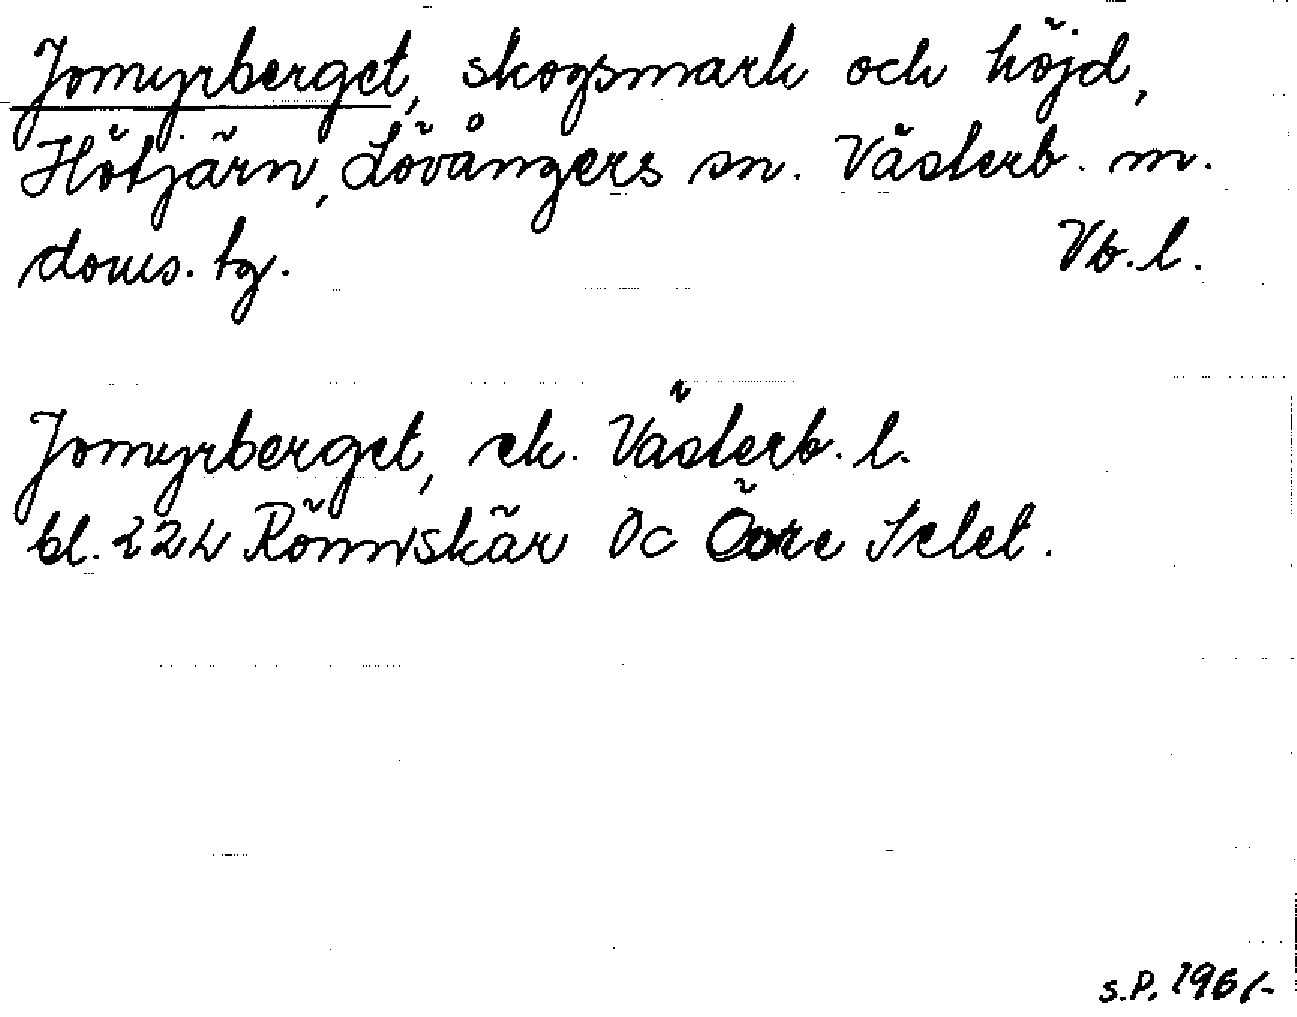 Jomyrberget, skogsmark och höjd,
Hötjärn, Lövångers sn. Västerb. m.
doms. tg. Vb. l.
Jomyrberget, ek. Västerb. l.
bl. 22L Rönnskär Oc Övre Selet.
S.P. 1961-